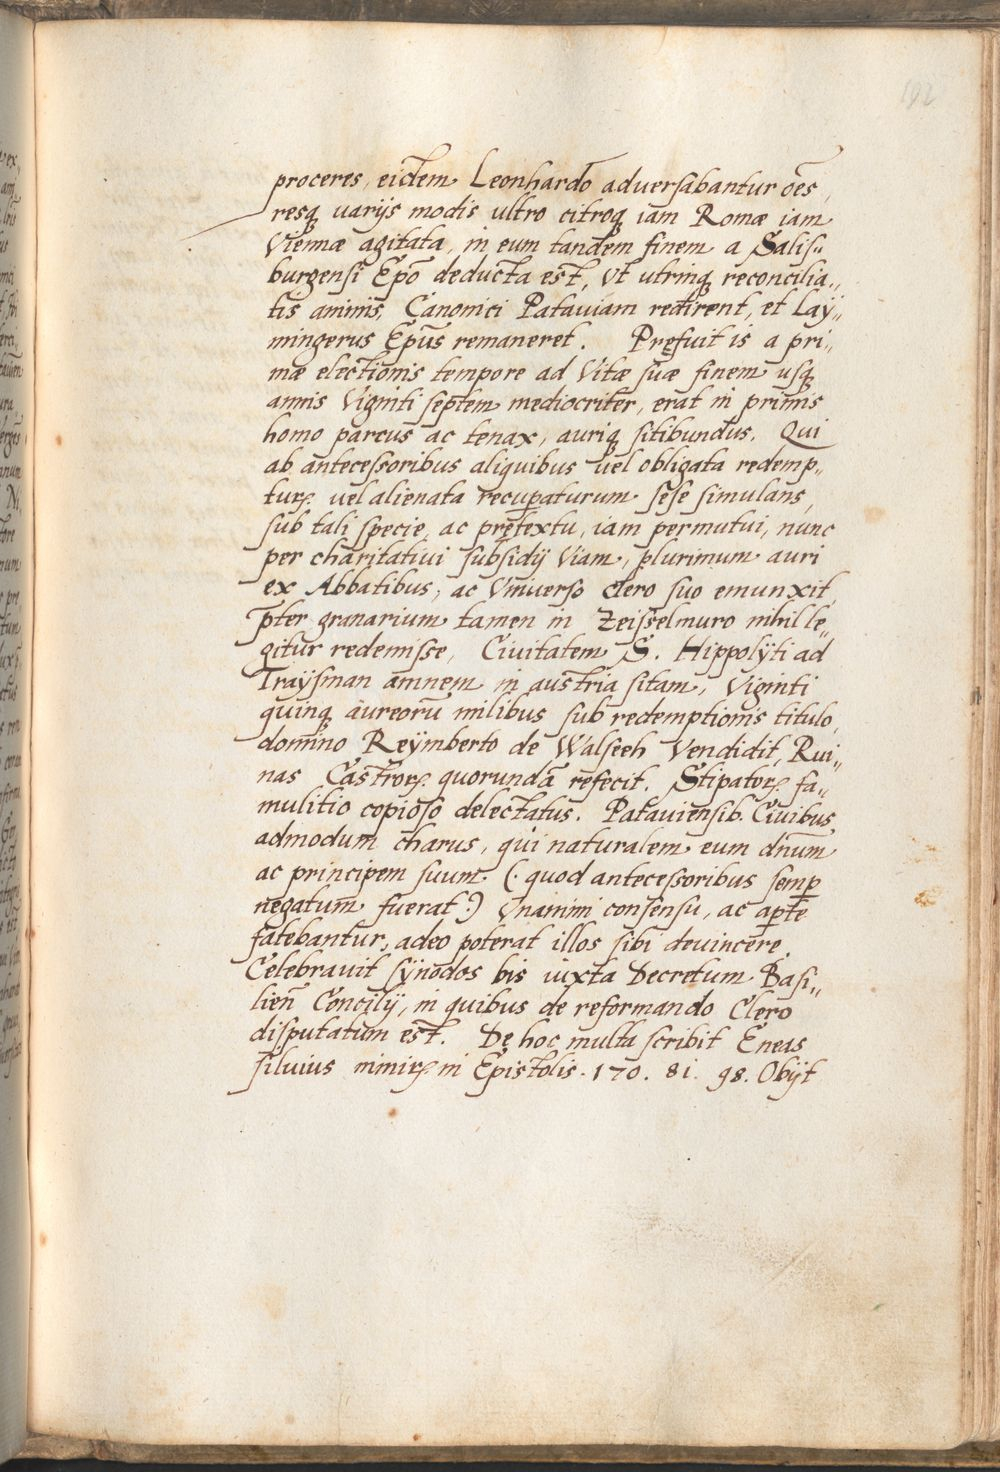 192
proceres, eidem Leonhardo adversabantur oēs,
resq̃ varijs modis ultro citroq̃ iam Romæ iam
Viennæ agitata, in eum tandem finem a Salis„
burgensi Epō deducta est, Vt utrinq̃ reconcilia„
tis animis, Canonici Patauiam redirent, et Laÿ„
mingerus Epũs remaneret. Pręfuit is a pri„
mæ electionis tempore ad Vitæ suæ finem usq̃
annis Viginti septem mediocriter, erat in primis
homo parcus ac tenax, auriq̃ sitibundus. Qui
ab antecessoribus aliquibus vel obligata redemp„
turꝝ vel alienata recuꝑaturum sese simulans,
sub tali specie, ac prętextu, iam permutui, nunc
per charitatiui subsidij Viam, plurimum auri
ex Abbatibus, ac Vniuerso clero suo emunxit
ꝓter granarium tamen in Zeisselmuro nihil le„
gitur redemisse, Ciuitatem S. Hippolÿti ad
Traÿsman amnem in austria sitam, Viginti
quinq̃ aureorū milibus sub redemptionis titulo,
domino Reÿmberto de Walseeh Vendidit, Rui„
nas Castroꝝ quorundā refecit. Stipatoꝝ fa„
mulitio copioso delectatus. Patauiensib. Ciuibus
admodum charus, qui naturalem eum dñum
ac principem suum (: quod antecessoribus semꝑ
negatum fuerat :) Vnanimi consensu, ac aꝑte
fatebantur, adeo poterat illos sibi deuincere.
Celebrauit sÿnodos bis iuxta Decretum Basi„
lieñ Concilÿ, in quibus de reformando Clero
disputatum est. De hoc multa scribit Eneas
siluius nimirꝝ in Epistolis. 170. 81. 98. Obÿt